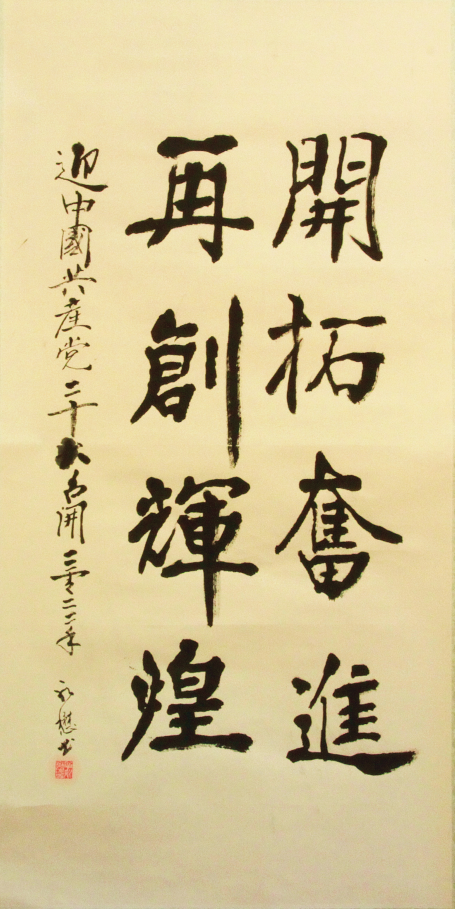 開拓奮進
再創輝煌
迎中國共産党二十大召開二零二二年